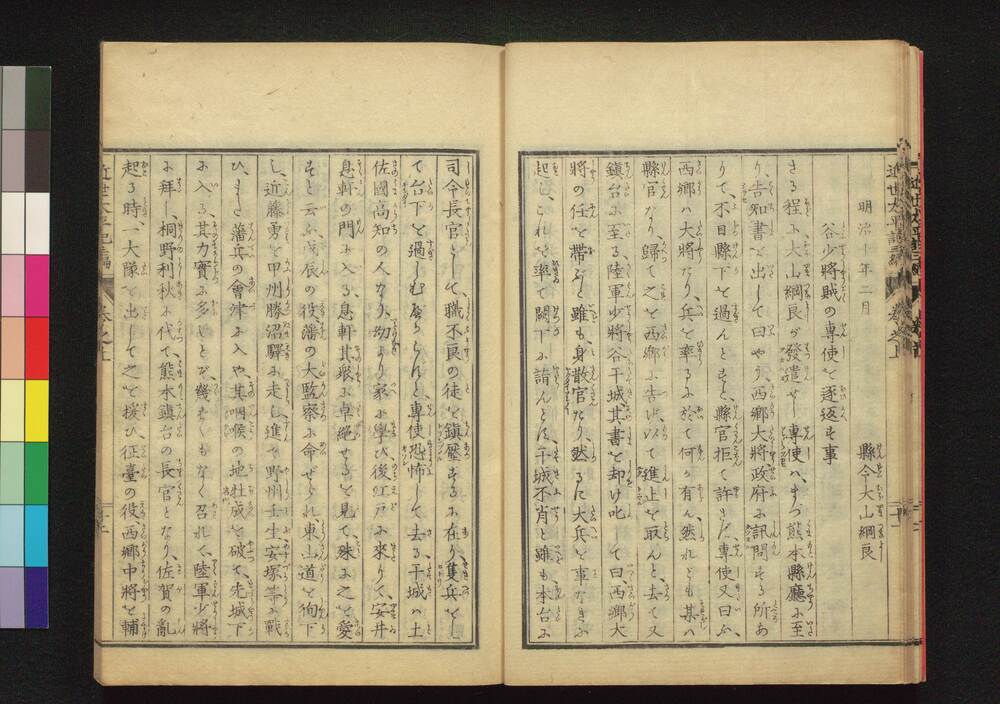 明治　年二月
縣令大山綱良
谷少將賊の專使を逐返す事
さる程に大山綱良が發遣せし專使ハ、まづ熊本縣廳に至
り、告知書を出して曰やう、西郷大將政府に訊問する所あ
りて、不日縣下を過んとすと、縣官拒て許さず、專使又曰ふ、
西郷ハ大將なり、兵を率るに於て何か有ん、然れども某ハ
縣官なり、歸て之を西郷に告げ、以て進止を取んと、去て又
鎭台に至る、陸軍少將谷干城其書を却け叱して曰、西郷大
將の任を帶ると雖も、身散官たり、然るに大兵を事なきに
起し、これを率て闕下に詣んとは、干城不肖と雖も本台に
司令長官として、職不良の徒を鎭壓するに在り、隻兵をし
て台下を過しむべからんと、專使恐怖して去る、干城ハ土
佐國高知の人なり、幼より家に學び後江戸に來りて、安井
息軒の門に入る、息軒其才に卓絶せるを見て、殊に之を愛
すと云ふ、戊辰の役、藩の大監察に命ぜられ、東山道を徇下
し、近藤勇を甲州勝沼驛に走し、進て野州壬生安塚等に戰
ひ、また藩兵の會津に入や、其咽喉の地壮成を破て、先城下
に入る、其力實に多しとぞ、幾もなく召れて、陸軍少將
に拜し、桐野利秋に代て、熊本鎭台の長官となり、佐賀の亂
起る時、一大隊を出して之を援ひ、征臺の役、西郷中將を輔
近世太平記二編
卷之上